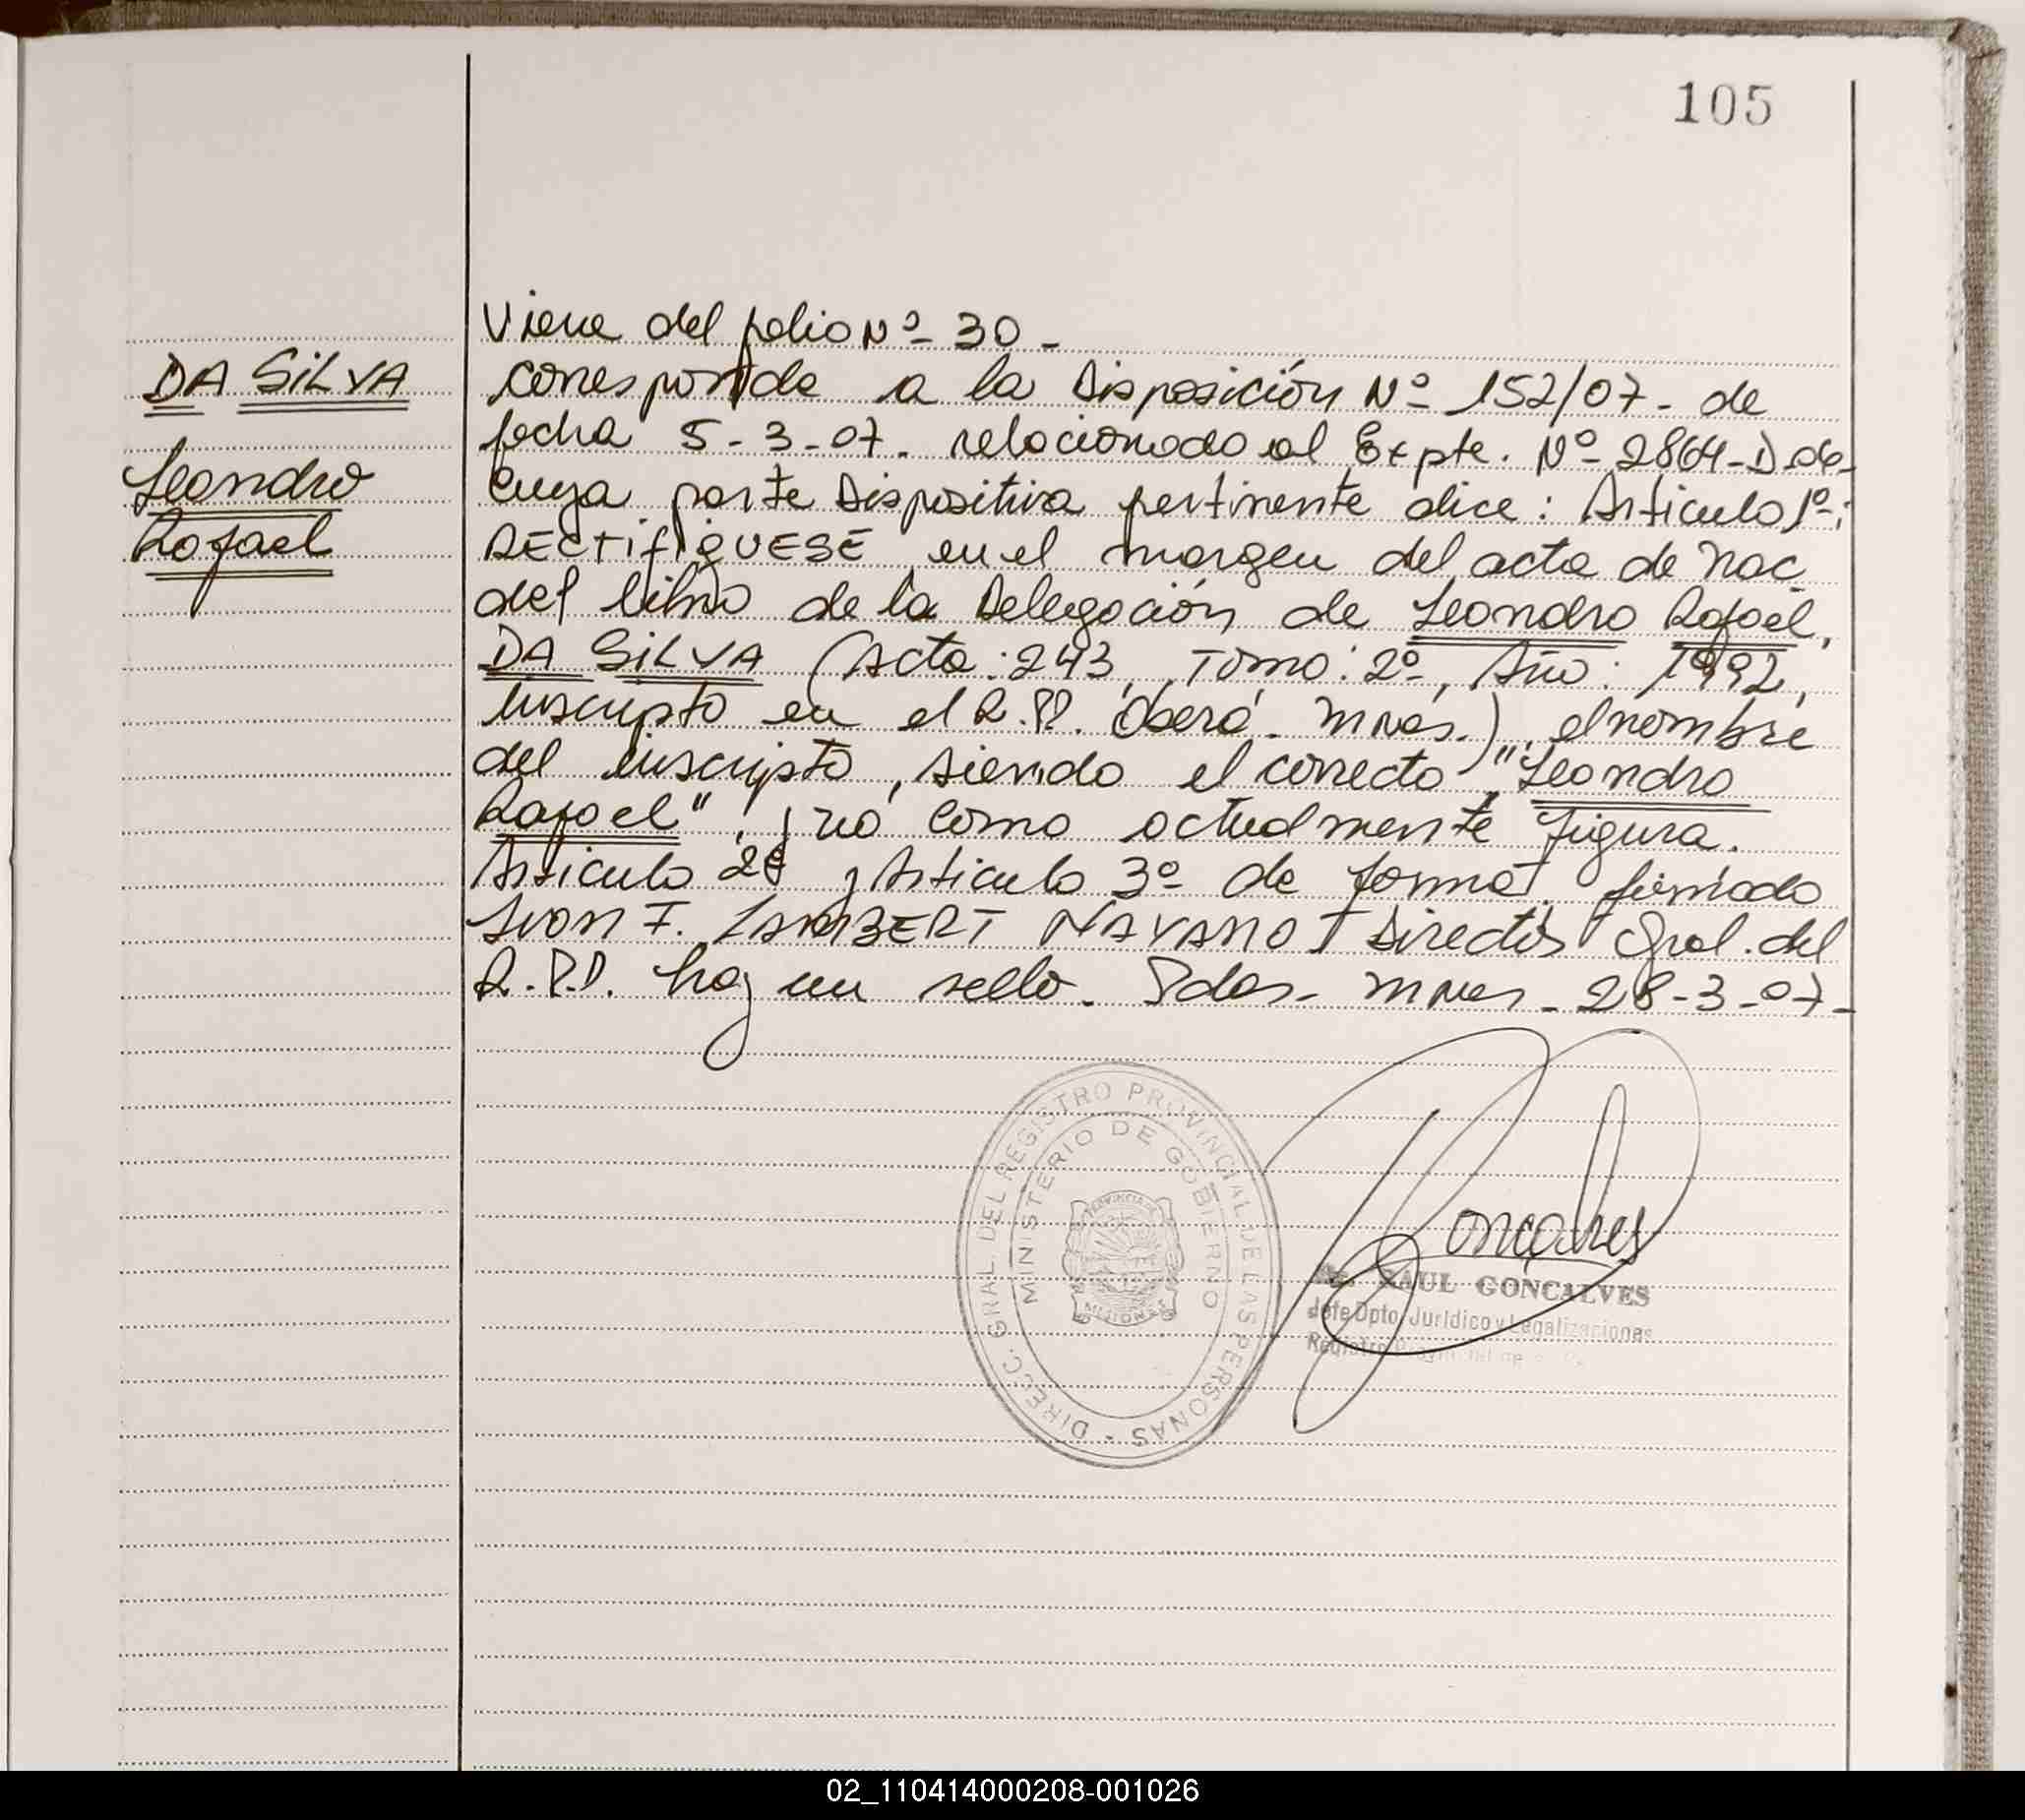 105
DA SILVA
Leandro
Rafael
Viene del folio Nº 30 -
corresponde a la Disposición Nº 152/07 - de
fecha 5-3-07. relacionado al Expte. Nº 2864-D-06-
cuya parte Dispositiva pertinente dice: Articulo 1º:
RECTIFIQUESE en el margen del acta de nac
del libro de la Delegación de Leandro Rafael,
DA SILVA (Acta: 243, Tomo: 2º, Año: 1992,
inscripto en el R.P. Oberá. Mnes.), el nombre
del inscripto, siendo el correcto "Leandro
Rafael" y no como actualmente figura.
Articulo 2º y Articulo 3º de forma. firmado
Ivan F. LAMBERT NAVARRO Director Gral. del
R.P.P. hay un sello. Pdas - Mnes - 28-3-07-
DIRECC. GRAL. DEL REGISTRO PROVINCIAL DE LAS PERSONAS
MINISTERIO DE GOBIERNO
PROVINCIA
MISIONES
Goncalves
RAUL GONCALVES
Jefe Dpto. Jurídico y Legalizaciones
Registro Provincial de
02_110414000208-001026